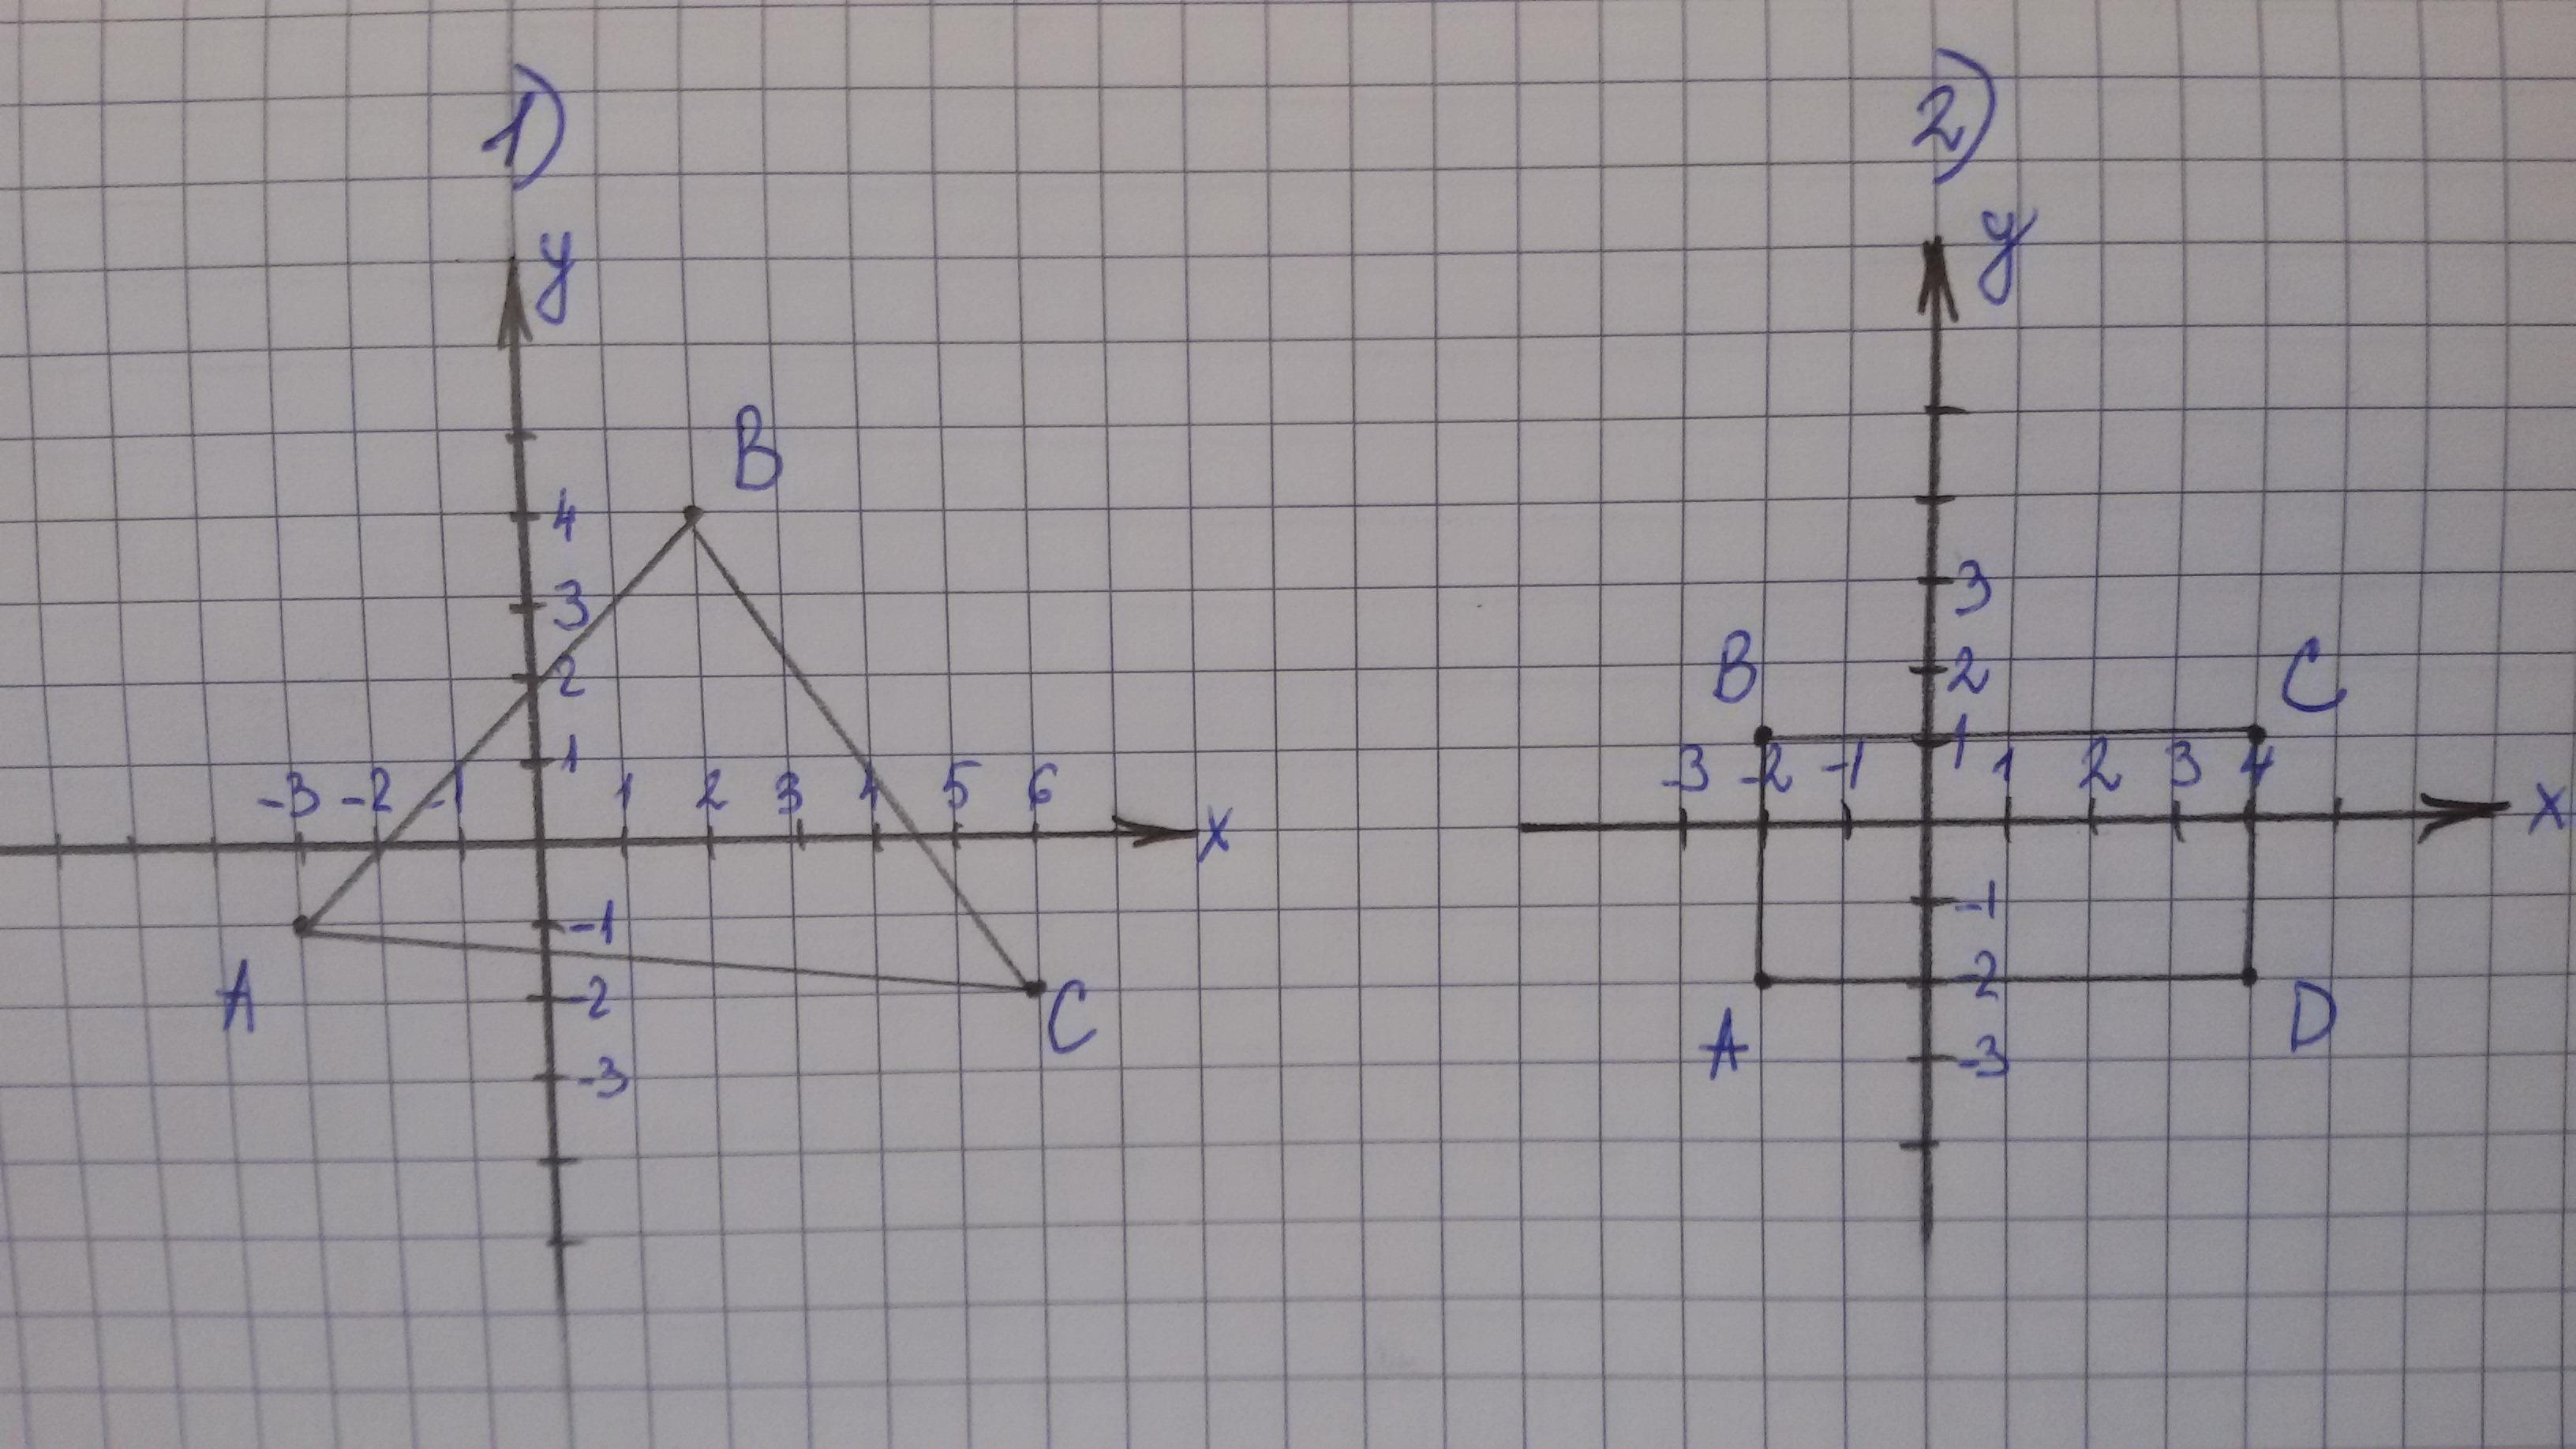 1)
y
B
4
3
2
1
-3 -2 -1 1 2 3 4 5 6
x
-1
A
-2
C
-3
2)
y
3
B
2
C
-3 -2 -1 1 1 2 3 4
x
-1
-2
A
D
-3